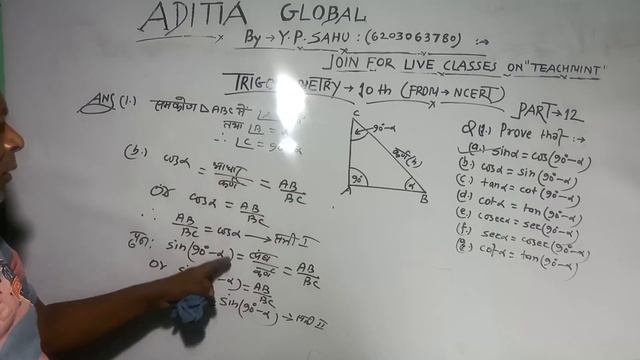 ADITIA GLOBAL
By → Y.P. SAHU : (6203063780) :→
JOIN FOR LIVE CLASSES ON "TEACHMINT"
TRIGONOMETRY → 10th (FROM → NCERT)
PART → 12
Ans (1.) समकोण △ ABC में
तथा ∠B =
∴ ∠C = 90°-α
(b.) cosα = आधार/कर्ण = AB/BC
Or cosα = AB/BC
∴ AB/BC = cosα → समी I
पुनः sin(90°-α) = लंब/कर्ण = AB/BC
Or -α) = AB/BC
= sin(90°-α) → समी II
C
90°-α
कर्ण (h)
90°
α
A
B
Q (1.) Prove that :→
(a.) sinα = cos(90°-α)
(b.) cosα = sin(90°-α)
(c.) tanα = cot(90°-α)
(d.) cotα = tan(90°-α)
(e.) cosecα = sec(90°-α)
(f.) secα = cosec(90°-α)
(g.) cotα = tan(90°-α)